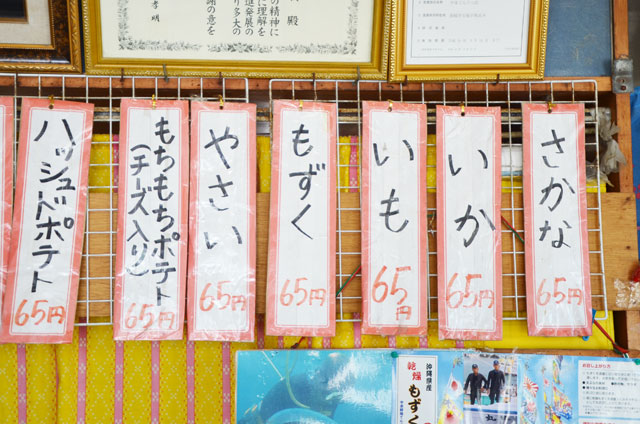 ハッシュドポテト
65円
もちもちポテト
(チーズ入り)
65円
やさい
65円
もずく
65円
いも
65円
いか
65円
さかな
65円
殿
の精神に
に理解を
進発展の
り多大の
謝の意を
孝明
沖縄県産
乾燥
もずく